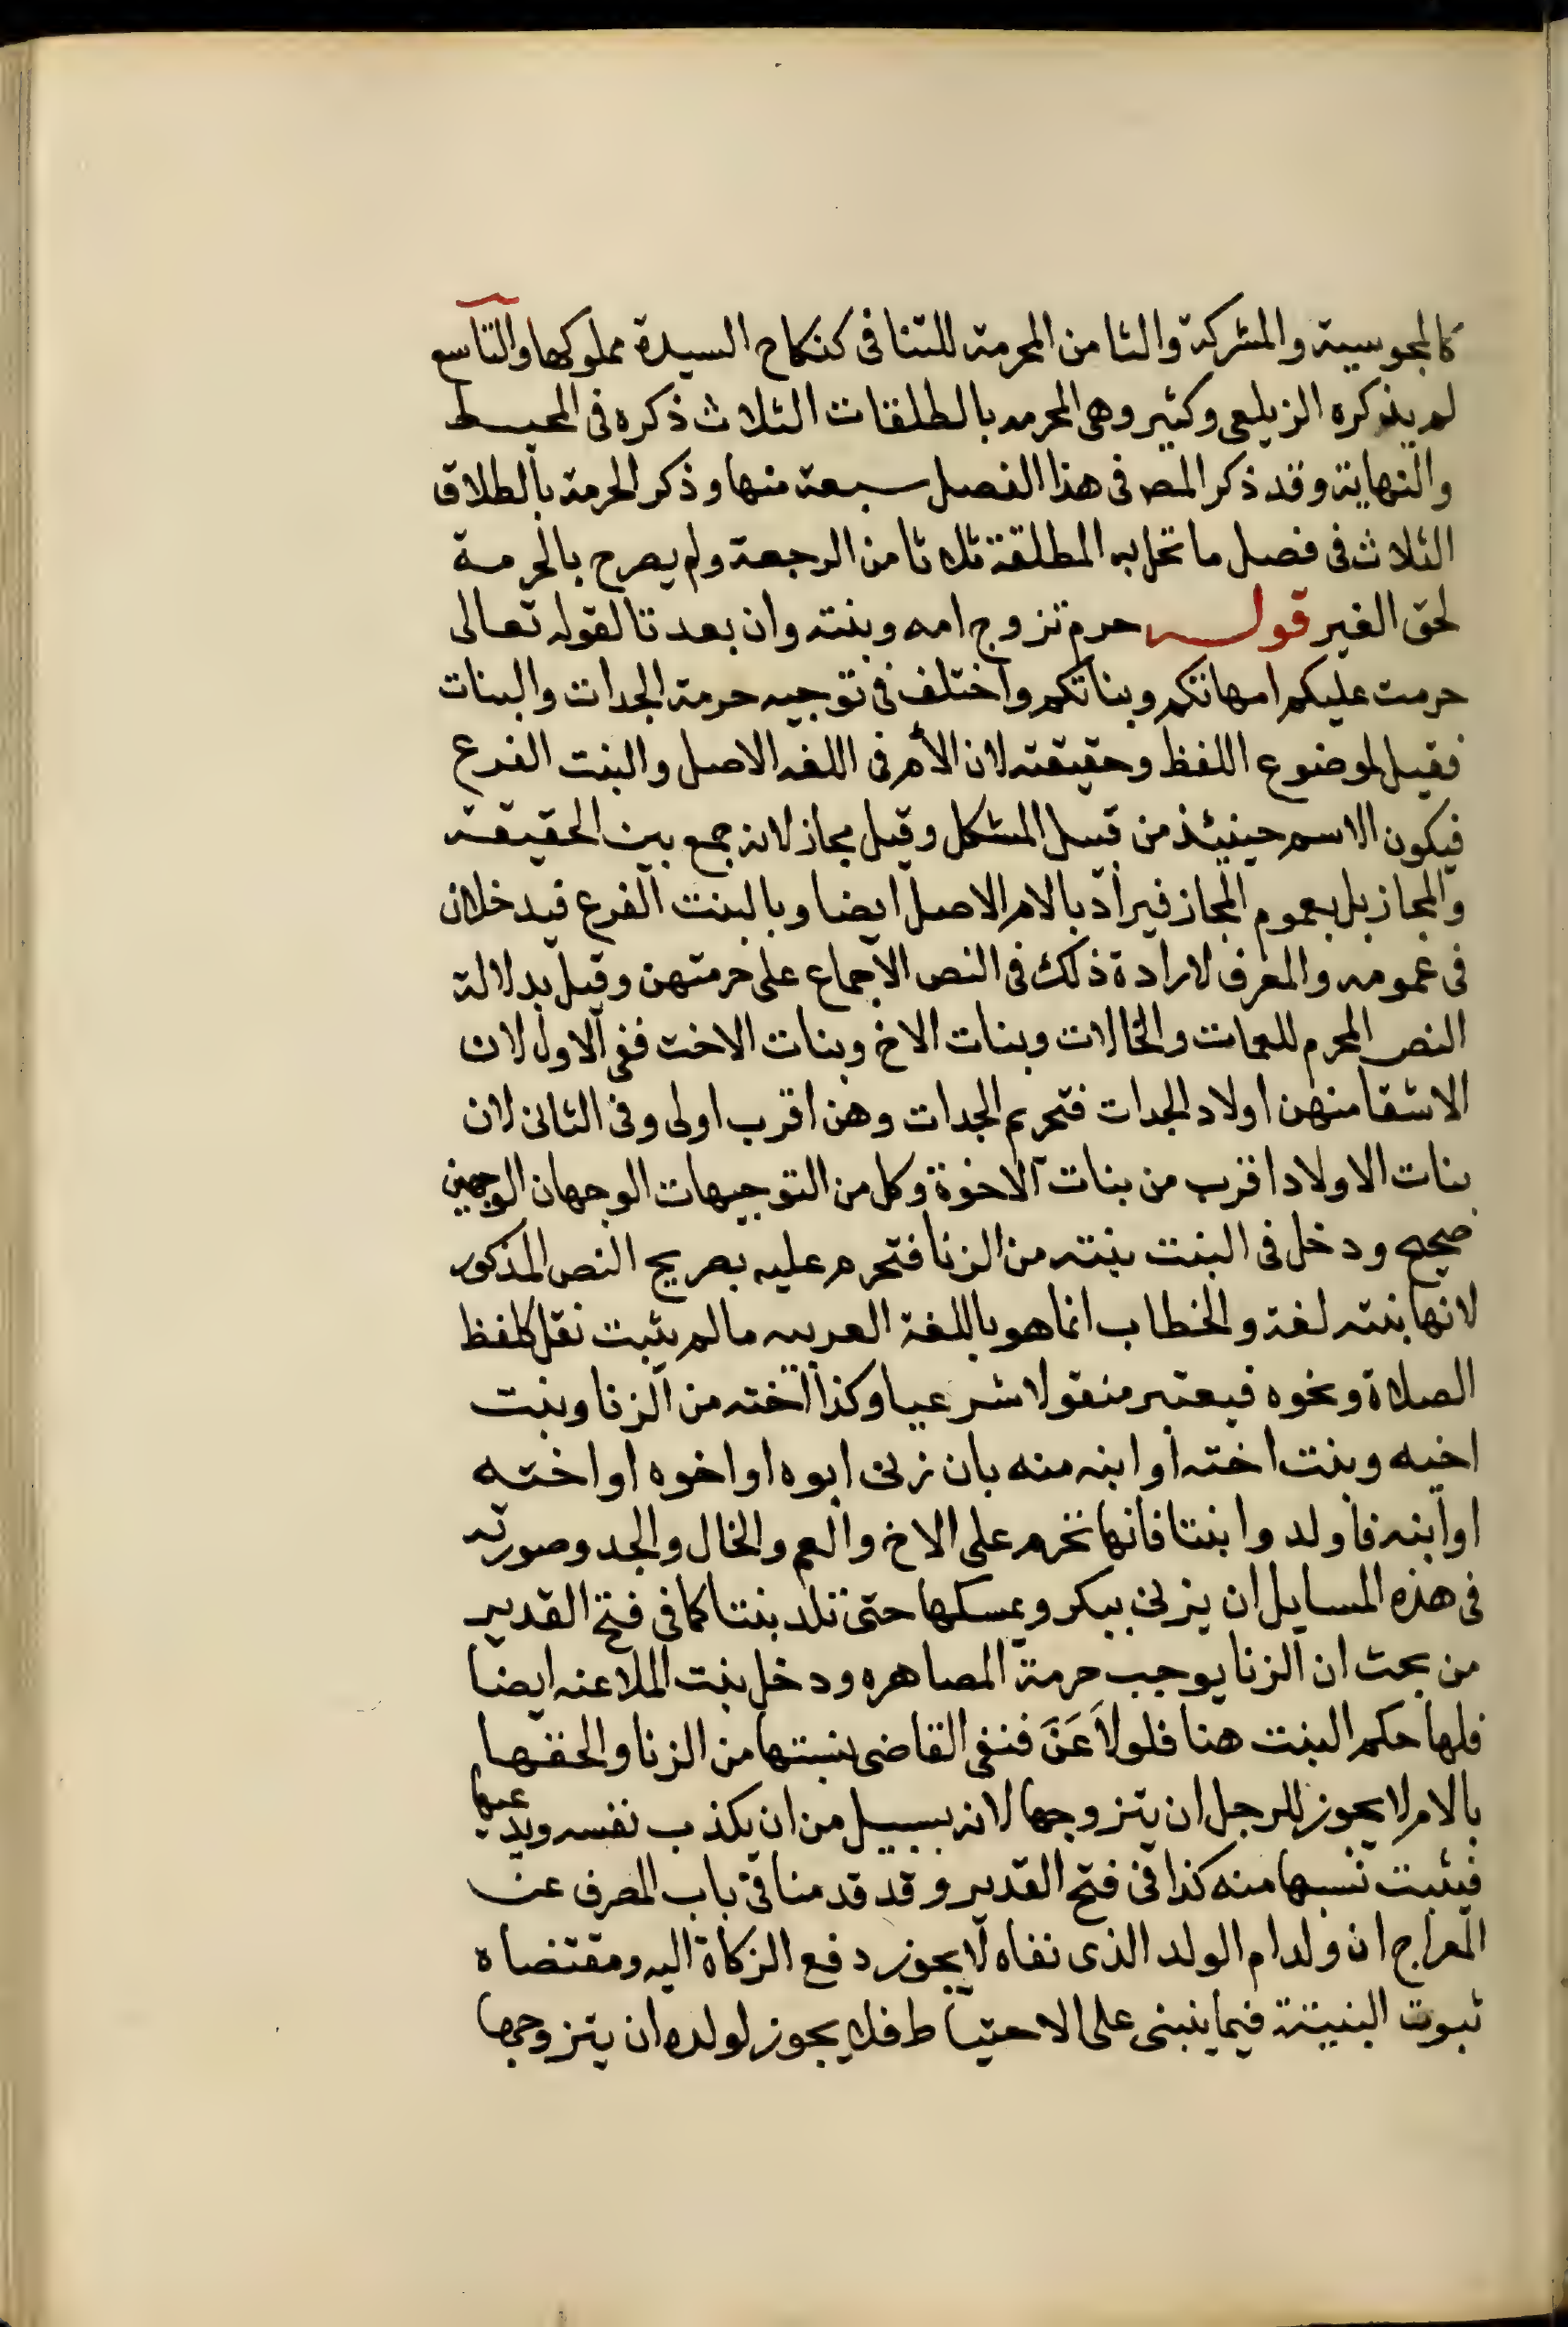 كالمجوسية والمشركة والثامن المحرمة للتنافى كنكاح السيدة مملوكها والتاسع
لم يذكره الزيلعى وكثير وهى المحرمه بالطلقات الثلاث ذكره فى المحيط
والنهاية وقد ذكر المص فى هذا الفصل سبعة منها وذكر الحرمة بالطلاق
الثلاث فى فصل ما تحل به المطلقة ثلاثا من الرجعة ولم يصرح بالحرمة
لحق الغير قوله حرم تزوج امه وبنته وان بعدتا لقوله تعالى
حرمت عليكم امهاتكم وبناتكم واختلف فى توجيه حرمة الجدات والبنات
فقيل لموضوع اللفظ وحقيقته لان الأم فى اللغه الاصل والبنت الفرع
فيكون الاسم حينيئذ من قبيل المشكل وقيل مجاز لانه جمع بين الحقيقة
والمجاز بل بعموم المجاز فيراد بالام الاصل ايضا وبالبنت الفرع فيدخلان
فى عمومه والمعرف لارادة ذلك فى النص الاجماع على حرمتهن وقيل بدلالة
النص المحرم للعمات والخالات وبنات الاخ وبنات الاخت ففى الاول لان
الاشقا منهن اولاد الجدات فتحريم الجدات وهن اقرب اولى وفى الثانى لان
بنات الاولاد اقرب من بنات الاخوة وكل من التوجيهات الوجهان الوجهين
صحيح ودخل فى البنت بنته من الزنا فتحرم عليه بصريح النص المذكور
لانها بنته لغة والخطاب انما هو باللغة العربيه مالم يثبت نقل كلفظ
الصلاة ونحوه فيعتبر منقولا شرعيا وكذا اخته من الزنا وبنت
اخيه وبنت اخته او ابنه منه بان زنى ابوه او اخوه او اخته
او ابنه فاولدوا بنتا فانها تحرم على الاخ والعم والخال والجد وصورته
فى هذه المسايل ان يزنى ببكر ويمسكها حتى تلد بنتا كما فى فتح القدير
من بحث ان الزنا يوجب حرمة المصاهره ودخل بنت الملاعنه ايضا
فلها حكم البنت هنا فلو لاَعَنَ فنفى القاضى نسبتها من الزنا والحقها
بالام لا يجوز للرجل ان يتزوجها لانه بسبيل من ان يكذب نفسه ويدعيها
فيثبت نسبها منه كذا فى فتح القدير وقد قدمنا فى باب المصرف عن
المعراج ان ولد ام الولد الذى نفاه لا يجوز دفع الزكاة اليه ومقتضاه
ثبوت البنتية فيما ينبنى على الاحتياط فلا يجوز لولده ان يتزوجها